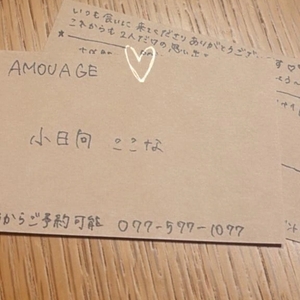 いつも会いに来てくださりありがとうござ
これからも2人だけの思い出
AMOUAGE
小日向 ここな
からご予約可能 077-577-1077